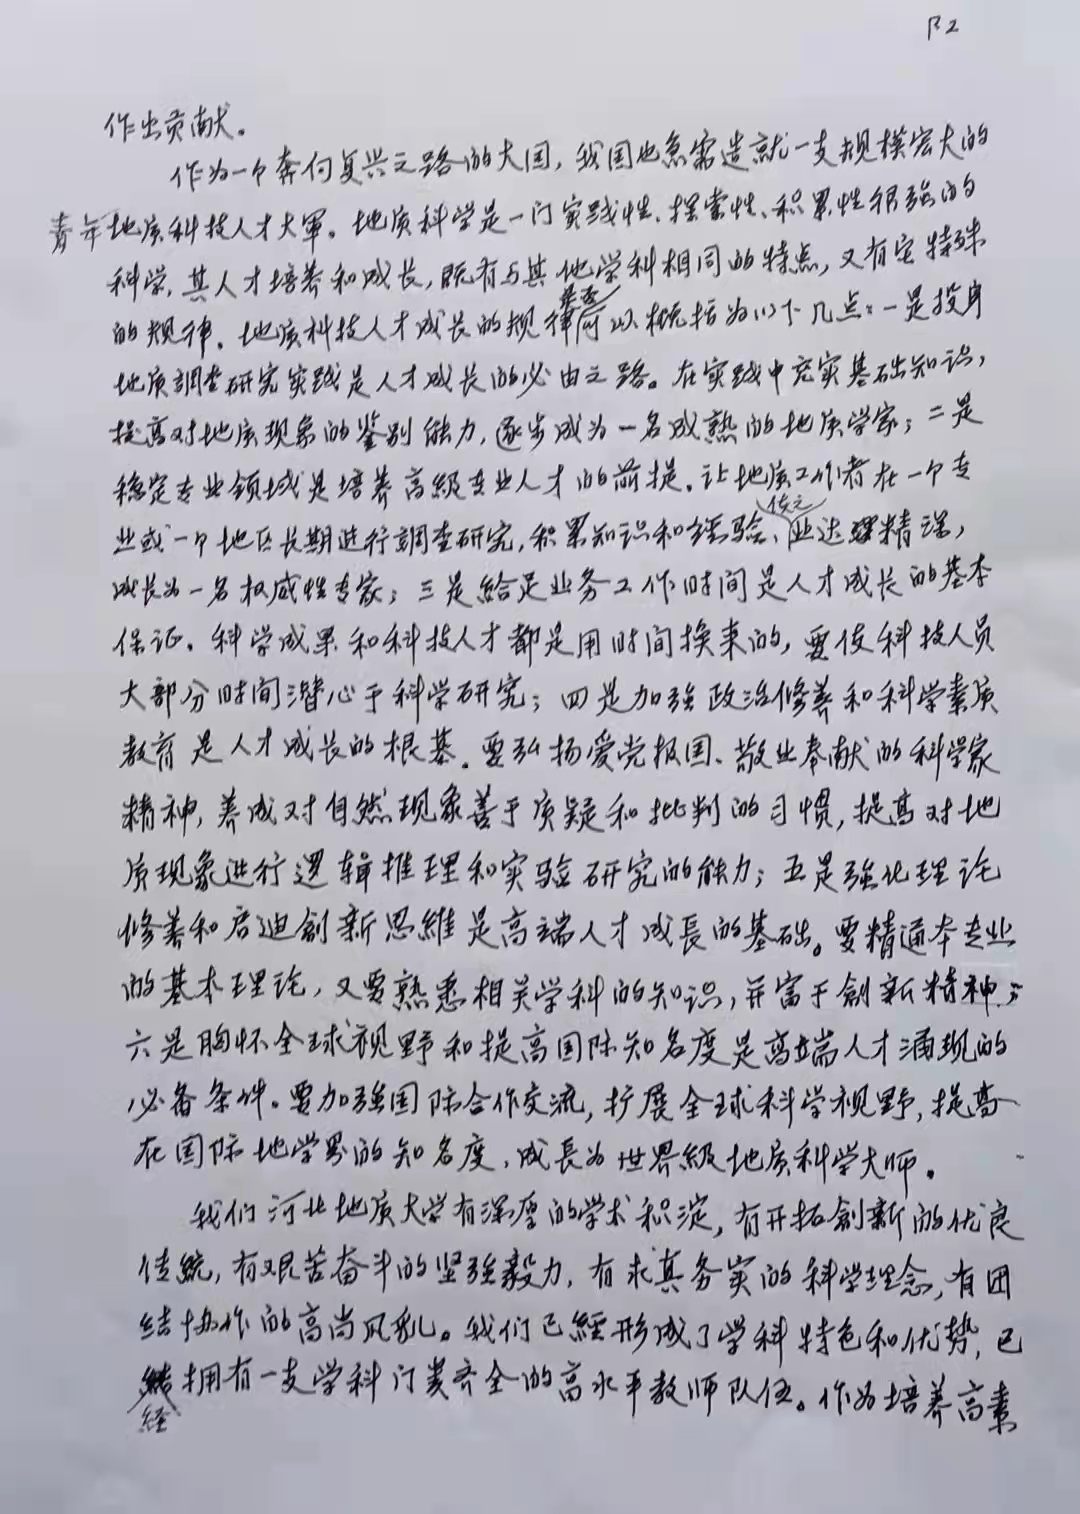 P2
作出贡献。
作为一个奔向复兴之路的大国，我国也急需造就一支规模宏大的
青年地质科技人才大軍。地质科学是一门实践性、探索性、积累性很强的
科学，其人才培养和成长，既有与其他学科相同的特点，又有它特殊
的规律。地质科技人才成长的规律可以概括为以下几点：一是投身
地质調查研究实践是人才成长的必由之路。在实践中充实基础知识，
提高对地质现象的鉴别能力，逐步成为一名成熟的地质学家；二是
稳定专业领域是培养高級专业人才的前提。让地质工作者在一个专
业或一个地区长期进行調查研究，积累知识和经验、使之业达精深，
成长为一名权威性专家；三是給足业务工作时间是人才成长的基本
保证。科学成果和科技人才都是用时间换来的，要使科技人员
大部分时间潜心于科学研究；四是加强政治修养和科学素质
教育是人才成长的根基。要弘扬爱党报国、敬业奉献的科学家
精神，养成对自然现象善于质疑和批判的习惯，提高对地
质现象进行逻辑推理和实验研究的能力；五是强化理论
修养和启迪創新思維是高端人才成長的基础。要精通本专业
的基本理论，又要熟悉相关学科的知识，并富于創新精神；
六是胸怀全球视野和提高国际知名度是高端人才涌现的
必备条件。要加强国际合作交流，扩展全球科学视野，提高
在国际地学界的知名度，成長为世界級地质科学大师。
我们河北地质大学有深厚的学术积淀，有开拓創新的优良
传統，有艰苦奋斗的坚强毅力，有求真务实的科学理念，有团
结协作的高尚风气。我们已經形成了学科特色和优势，已
经拥有一支学科门类齐全的高水平教师队伍。作为培养高素